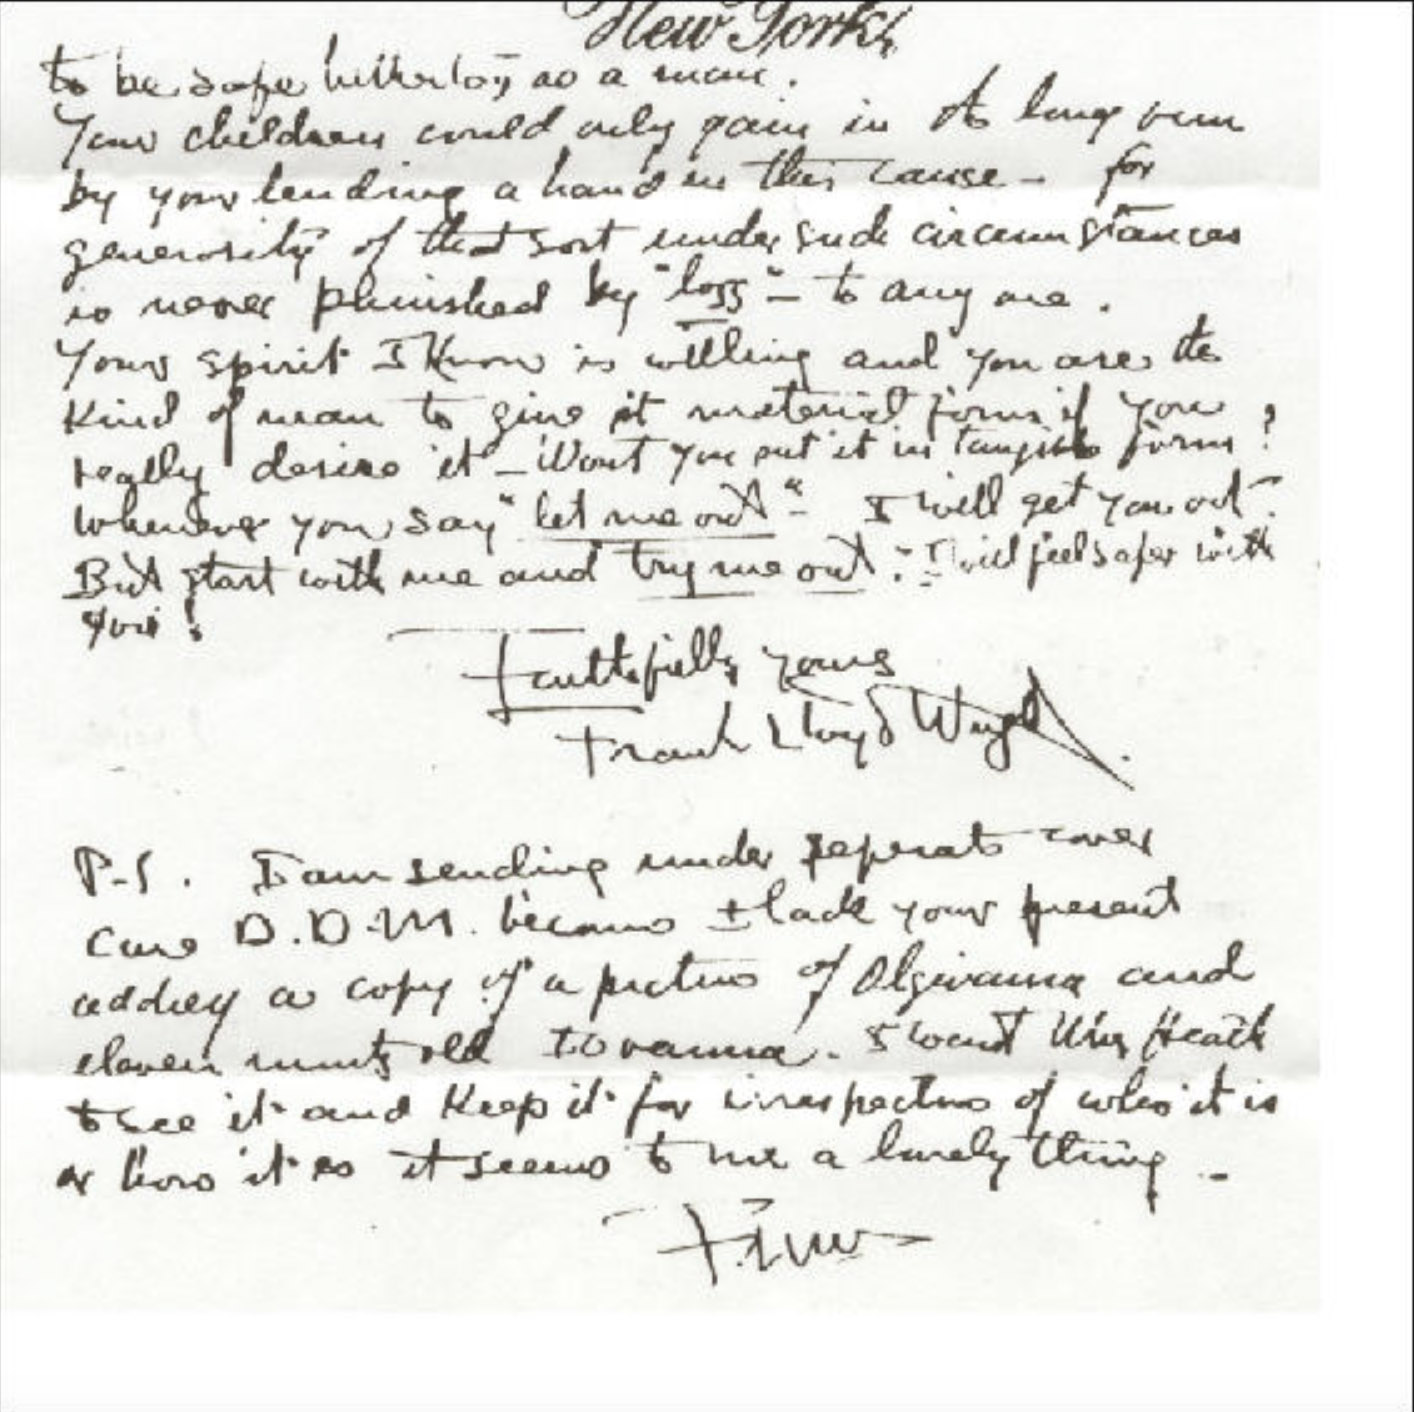 New York
to be safe hitherto, as a man.
Your children could only gain in the long run
by your lending a hand in this cause – for
generosity of that sort under such circumstances
is never phinished by "loss" – to any one.
Your spirit I know is willing and you are the
kind of man to give it material form if you
really desire it – Wont you put it in tangible form?
Whenever you say "let me out" – I will get you out.
But start with me and try me out: I will feel safer with
you!
Faithfully yours
Frank Lloyd Wright
P.S. I am sending under seperate cover
care D.D.M. because I lack your present
address a copy of a picture of Olgivanna and
eleven months old Iovanna. I want Mrs Heath
to see it and keep it for irrespective of who it is
or how it is it seems to me a lovely thing –
F.Ll.W.